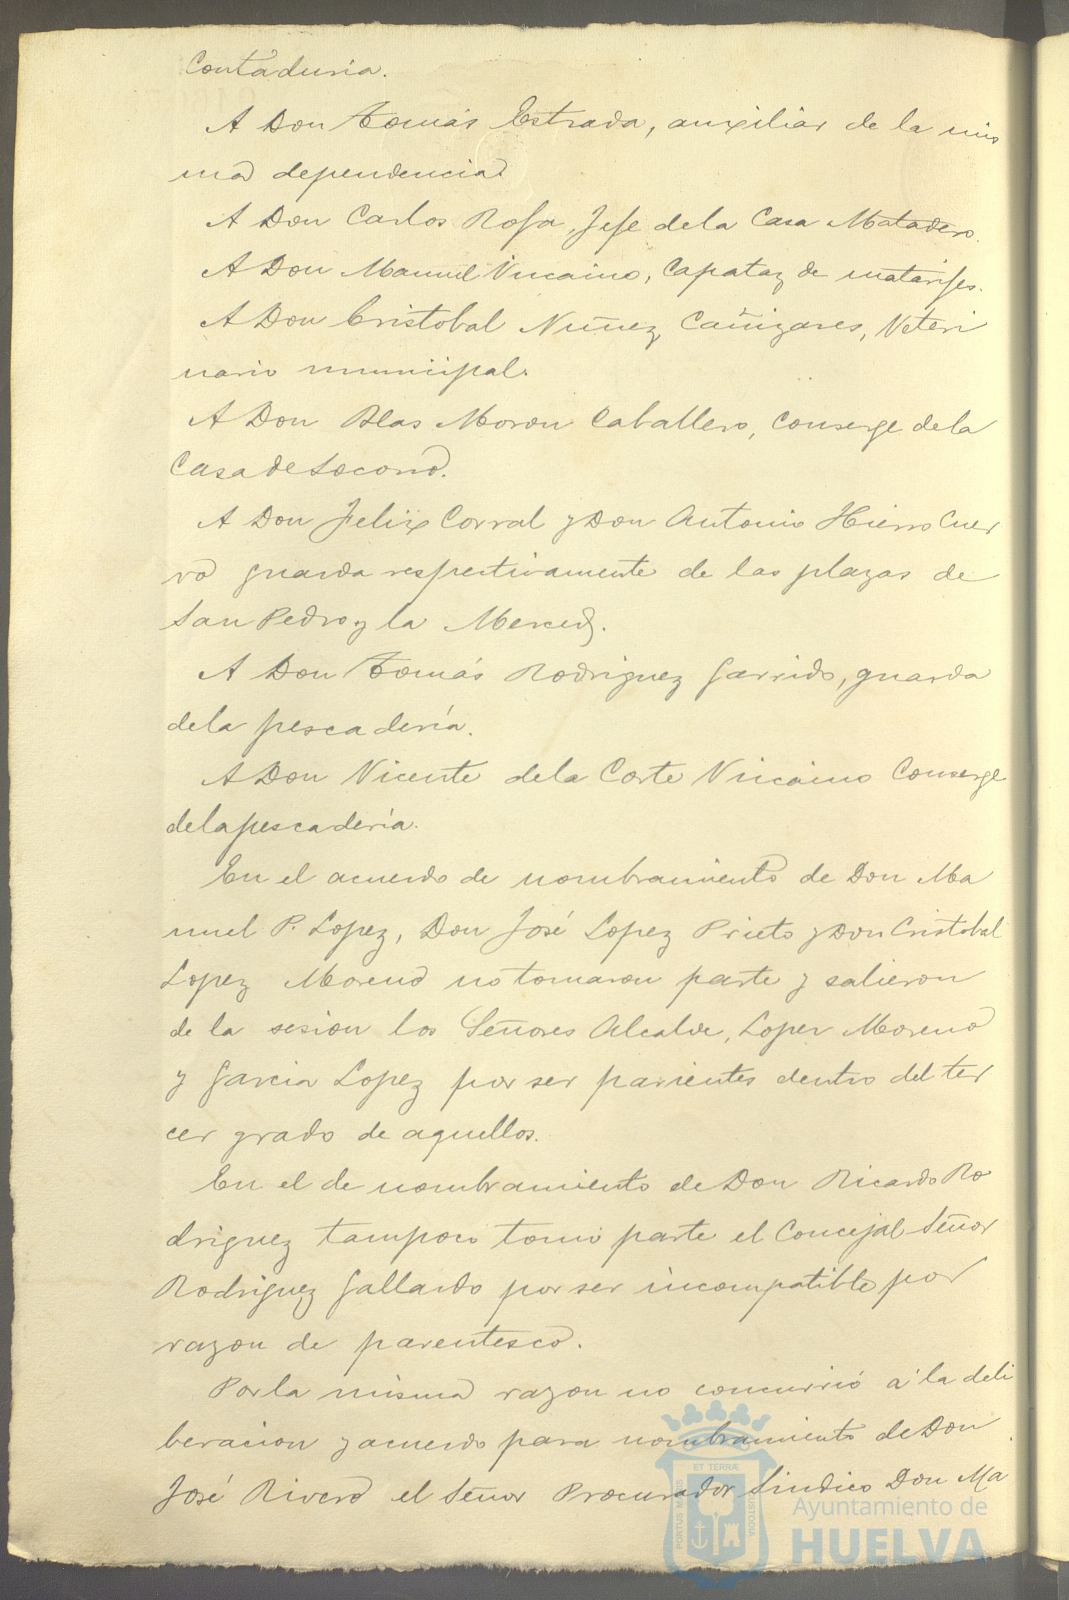 Contaduria.
A Don Tomás Estrada, auxiliar de la mis
ma dependencia
A Don Carlos Rofa, Jefe de la Casa Matadero.
A Don Manuel Vizcaino, Capataz de matarifes.
A Don Cristobal Nuñez Cañizares, Veteri
nario municipal.
A Don Blas Moron Caballero, Conserge de la
Casa de Socorro.
A Don Felix Corral y Don Antonio Hierro Cuer
vo guarda respectivamente de las plazas de
San Pedro y la Merced.
A Don Tomás Rodriguez Garrido, guarda
de la pescadería.
A Don Vicente de la Corte Vizcaino Conserge
de la pescadería.
En el acuerdo de nombramiento de Don Ma
nuel P. Lopez, Don José Lopez Prieto y Don Cristobal
Lopez Moreno no tomaron parte y salieron
de la sesion los Señores Alcalde, Lopez Moreno
y Garcia Lopez por ser parientes dentro del ter
cer grado de aquellos.
En el de nombramiento de Don Ricardo Ro
driguez tampoco tomó parte el Concejal Señor
Rodriguez Gallardo por ser incompatible por
razon de parentesco.
Por la misma razon no concurrió á la deli
beracion y acuerdo para nombramiento de Don
José Rivero el Señor Procurador Sindico Don Ma
PORTUS MARIS ET TERRAE CUSTODIA
Ayuntamiento de
HUELVA